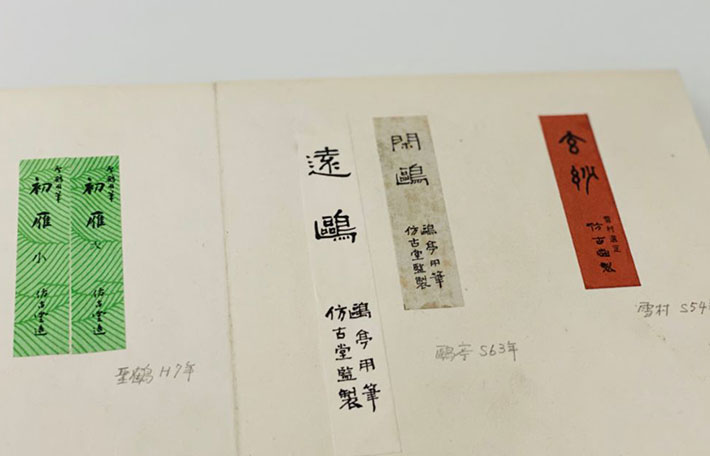 初雁 大
仿古堂造
初雁 小
仿古堂造
H7年
遠鷗
鷗亭用筆
仿古堂監製
閑鷗
鷗亭用筆
仿古堂監製
鷗亭 S63年
雪村選定
仿古堂製
雪村 S54